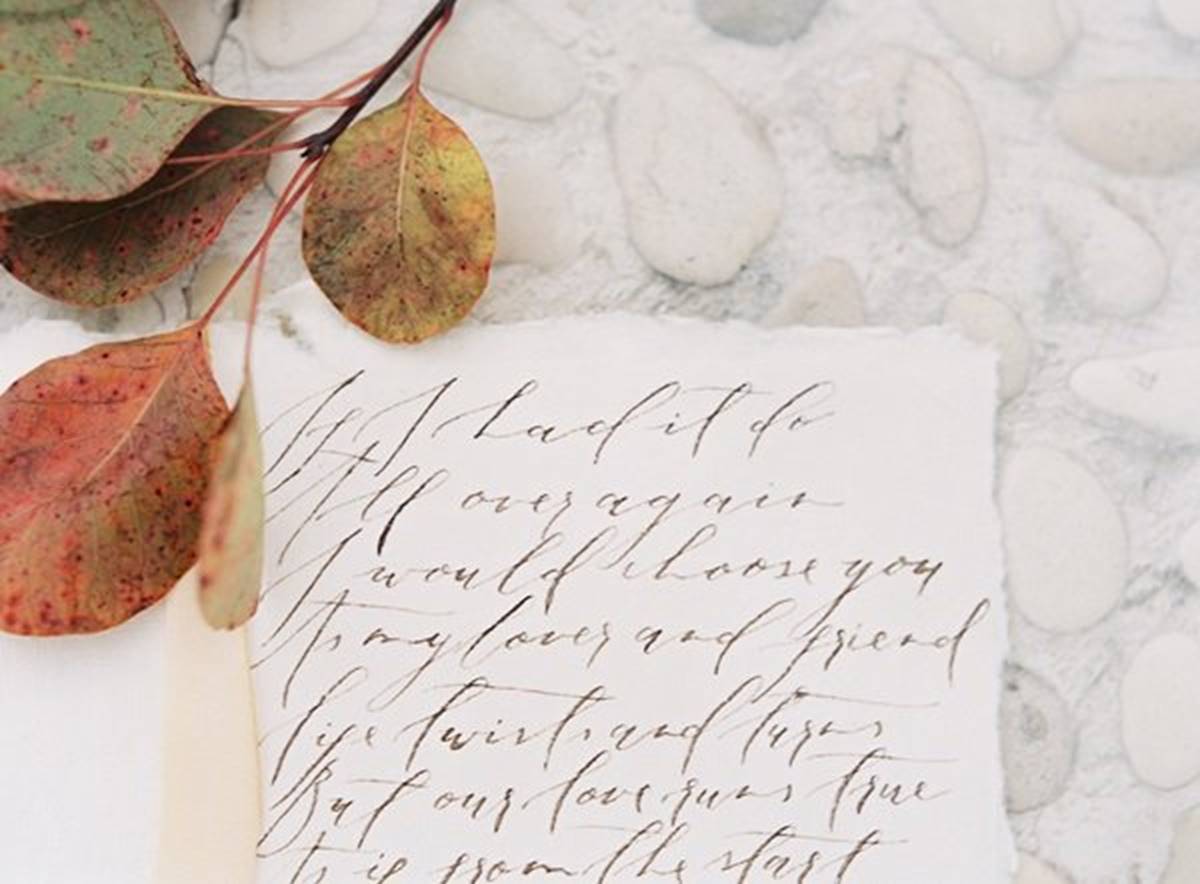 If I had it do
All over again
I would choose you
As my lover and friend
Life twists and turns
But our love runs true
As if from the start